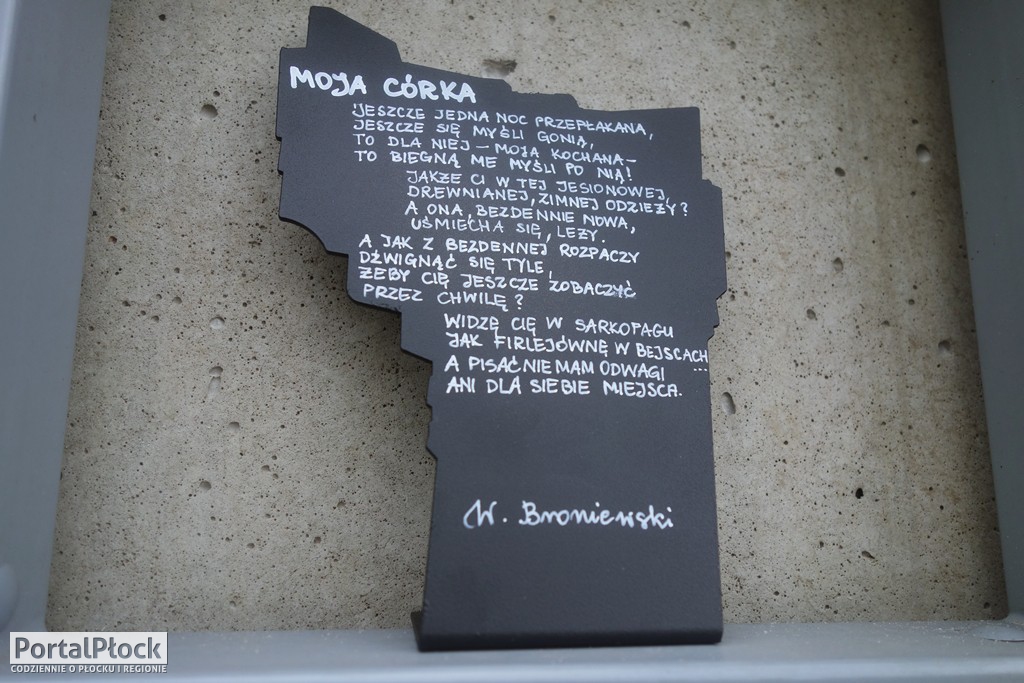 MOJA CÓRKA
JESZCZE JEDNA NOC PRZEPŁAKANA,
JESZCZE SIĘ MYŚLI GONIĄ,
TO DLA NIEJ – MOJA KOCHANA –
TO BIEGNĄ ME MYŚLI PO NIĄ!
JAKŻE CI W TEJ JESIONOWEJ,
DREWNIANEJ, ZIMNEJ ODZIEŻY?
A ONA, BEZDENNIE NOWA,
UŚMIECHA SIĘ, LEŻY.
A JAK Z BEZDENNEJ ROZPACZY
DŹWIGNĄĆ SIĘ TYLE,
ŻEBY CIĘ JESZCZE ZOBACZYĆ
PRZEZ CHWILĘ?
WIDZĘ CIĘ W SARKOPAGU
JAK FIRLEJÓWNĘ W BEJSCACH...
A PISAĆ NIE MAM ODWAGI
ANI DLA SIEBIE MIEJSCA.
W. Broniewski
PortalPłock
CODZIENNIE O PŁOCKU I REGIONIE